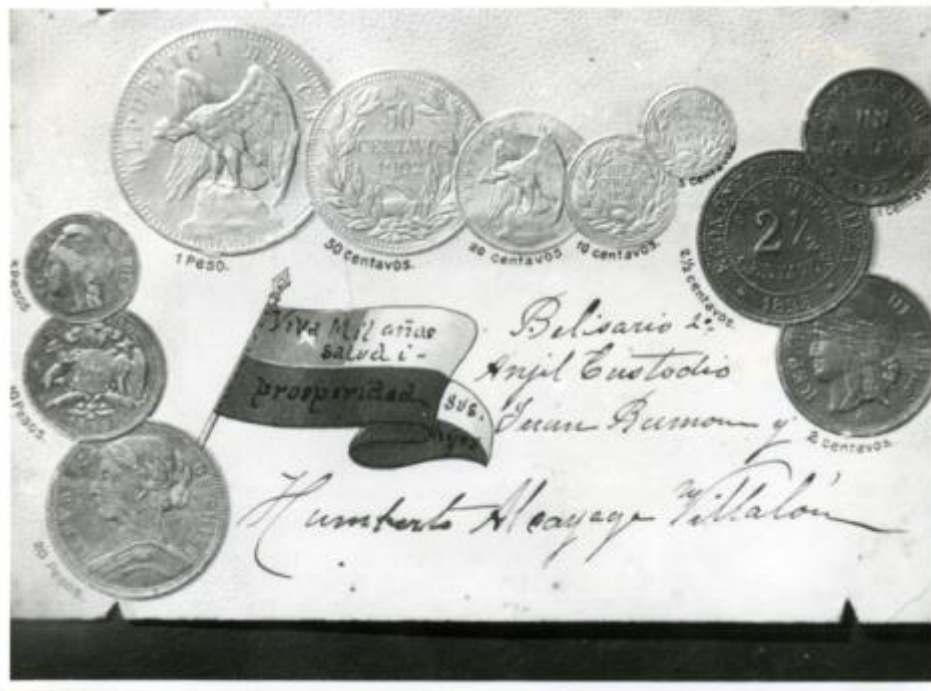 REPUBLICA DE
50
CENTAVOS
1 Peso.
50 centavos.
20 centavos
10 centavos.
5 centavos.
UN
1 centavo
2½
1895
2½ centavos.
2 centavos.
5 Pesos
10 Pesos.
20 Pesos.
Viva Mil años
salud i-
prosperidad
sus.
hijos
Belisario 2º.
Anjil Custodio
Juan Ramon y
Humberto Alcayaga Villalón